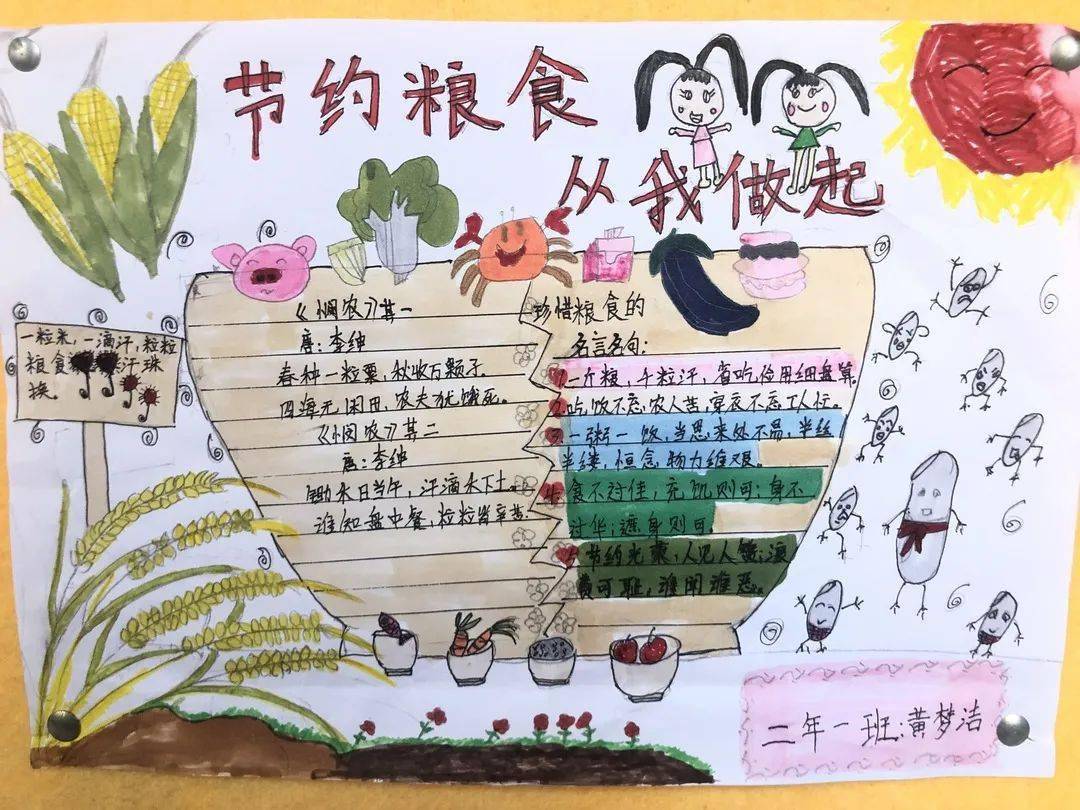 节约粮食
从我做起
一粒米,一滴汗,粒粒
粮食汗珠
换。
《悯农》其一
唐:李绅
春种一粒粟,秋收万颗子。
四海无闲田,农夫犹饿死。
《悯农》其二
唐:李绅
锄禾日当午,汗滴禾下土。
谁知盘中餐,粒粒皆辛苦。
珍惜粮食的
名言名句:
1.一斤粮,千粒汗,省吃俭用细盘算。
2.吃饭不忘农人苦,穿衣不忘工人忙。
3.一粥一饭,当思来处不易,半丝
半缕,恒念物力维艰。
4.食不过佳,充饥则可;身不
过华;遮身则可。
5.节约光荣,人见人
费可耻,谁用谁恶。
二年一班:黄梦洁